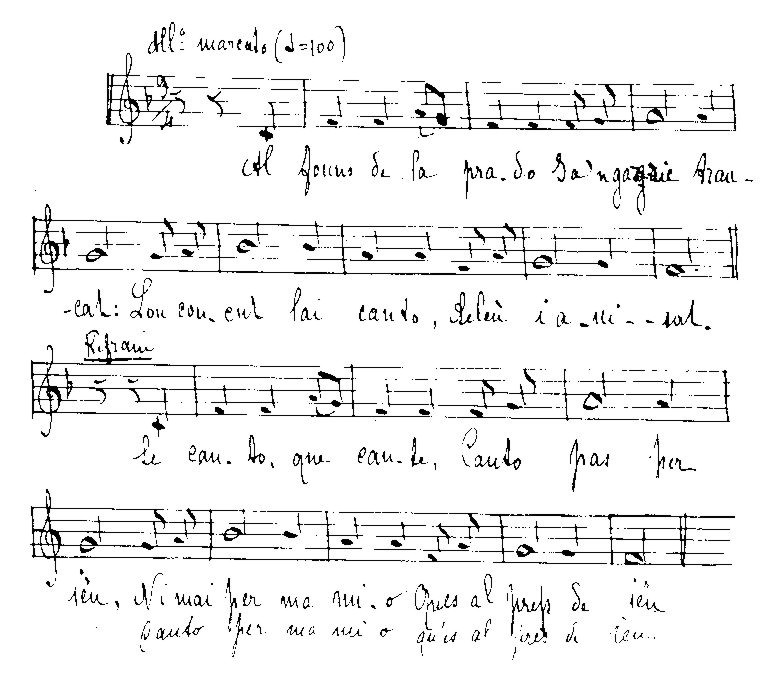 All° marcato (♩=100)
9/4
Al founs de la pra-do Ia'n ga Aran-
-cat: Lou cou-cut lai canto, Beleù i a-ni--sat.
Refrain
Se can-to, que can-te, Canto pas per
ièu, Ni mai per ma mi-o Qu'es al prep de ièu
Canto per ma mi o qu'es al pres de ieu.